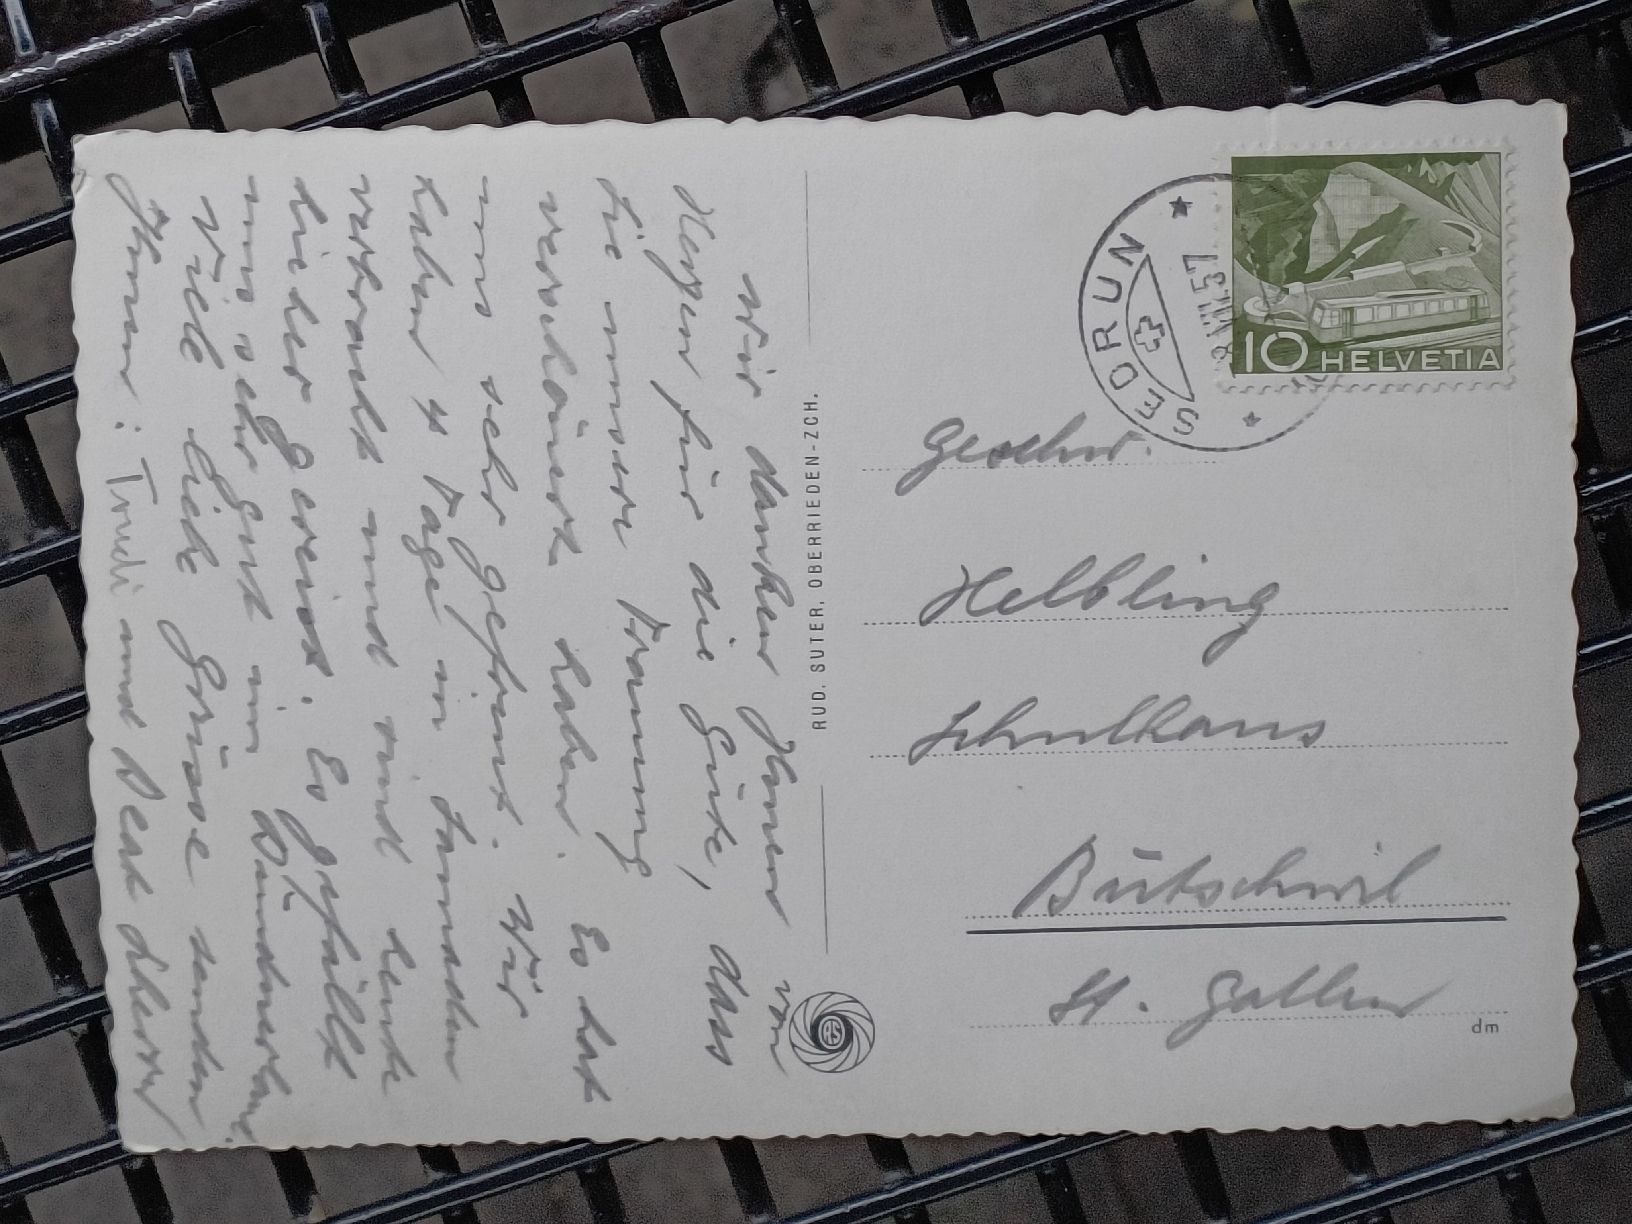 Wir danken Ihnen von
Herzen für die Güte, dass
Sie unsere Trauung
verschönert haben. Es hat
uns sehr gefreut. Wir
haben 4 Tage in
verbracht und sind heute
hieher gereist. Es gefällt
uns sehr gut im Bündnerland.
Viele liebe Grüsse senden
Ihnen: Trudi und Beat
RUD. SUTER, OBERRIEDEN-ZCH.
RS
SEDRUN
VII.57
10 HELVETIA
Geschw.
Helbling
Schulhaus
Bütschwil
St. Gallen
dm